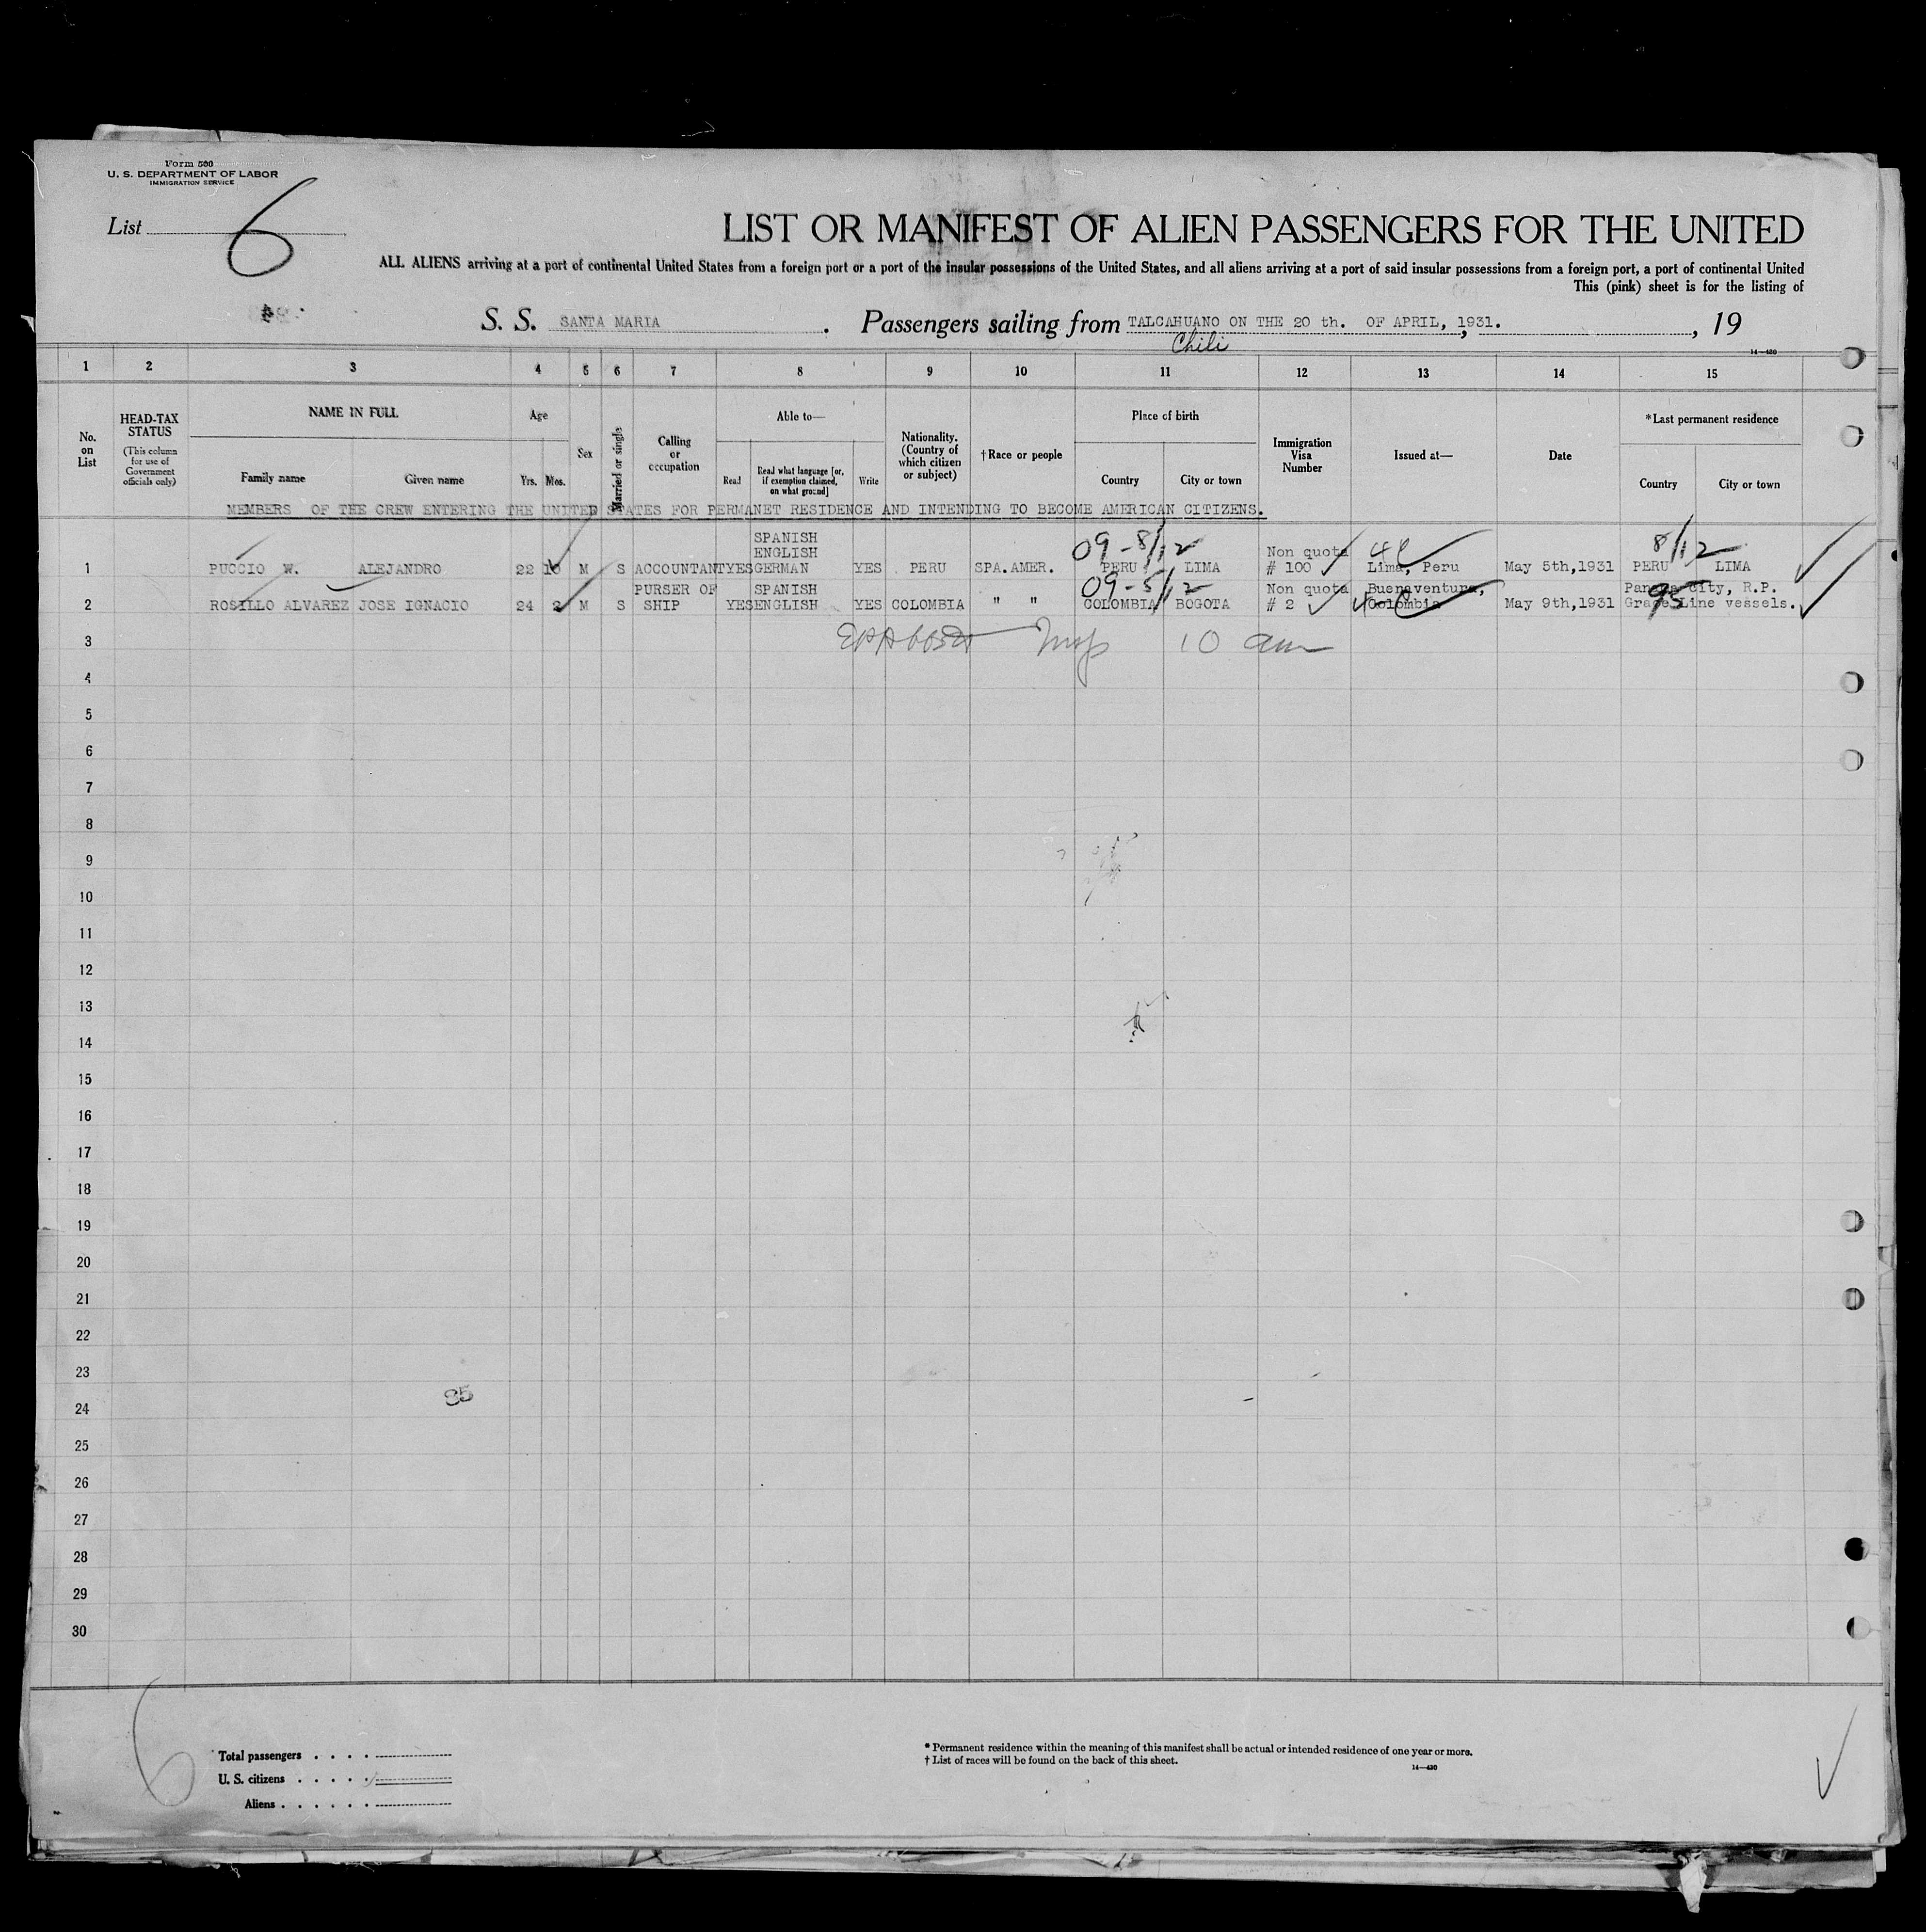 Form 500
U. S. DEPARTMENT OF LABOR
IMMIGRATION SERVICE
List 6
LIST OR MANIFEST OF ALIEN PASSENGERS FOR THE UNITED
ALL ALIENS arriving at a port of continental United States from a foreign port or a port of the insular possessions of the United States, and all aliens arriving at a port of said insular possessions from a foreign port, a port of continental United
This (pink) sheet is for the listing of
S. S. SANTA MARIA. Passengers sailing from TALCAHUANO ON THE 20 th. OF APRIL, 1931. , 19
Chili
14—430
1 2 3 4 5 6 7 8 9 10 11 12 13 14 15
No. on List
HEAD-TAX STATUS
(This column for use of Government officials only)
NAME IN FULL
Family name Given name
Age
Yrs. Mos.
Sex
Married or single
Calling or occupation
Able to—
Read
Read what language [or, if exemption claimed, on what ground]
Write
Nationality. (Country of which citizen or subject)
†Race or people
Place of birth
Country City or town
Immigration Visa Number
Issued at—
Date
*Last permanent residence
Country City or town
MEMBERS OF THE CREW ENTERING THE UNITED STATES FOR PERMANET RESIDENCE AND INTENDING TO BECOME AMERICAN CITIZENS.
SPANISH 09-8/12 8/12
ENGLISH Non quota
1 PUCCIO W. ALEJANDRO 22 10 M S ACCOUNTANT YES GERMAN YES PERU SPA.AMER. PERU LIMA # 100 Lima, Peru May 5th,1931 PERU LIMA
PURSER OF SPANISH 09-5/12 Non quota Buenaventura, Panama City, R.P.
2 ROSILLO ALVAREZ JOSE IGNACIO 24 2 M S SHIP YES ENGLISH YES COLOMBIA " " COLOMBIA BOGOTA # 2 Colombia May 9th,1931 95 Grace Line vessels.
3 10 am
4
5
6
7
8
9
10
11
12
13
14
15
16
17
18
19
20
21
22
23
24
25
26
27
28
29
30
6
Total passengers . . . .
U. S. citizens . . . . .
Aliens . . . . . .
* Permanent residence within the meaning of this manifest shall be actual or intended residence of one year or more.
† List of races will be found on the back of this sheet.
14—430